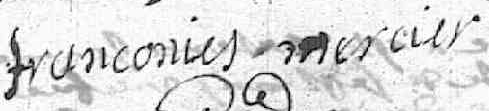 franconies mercier